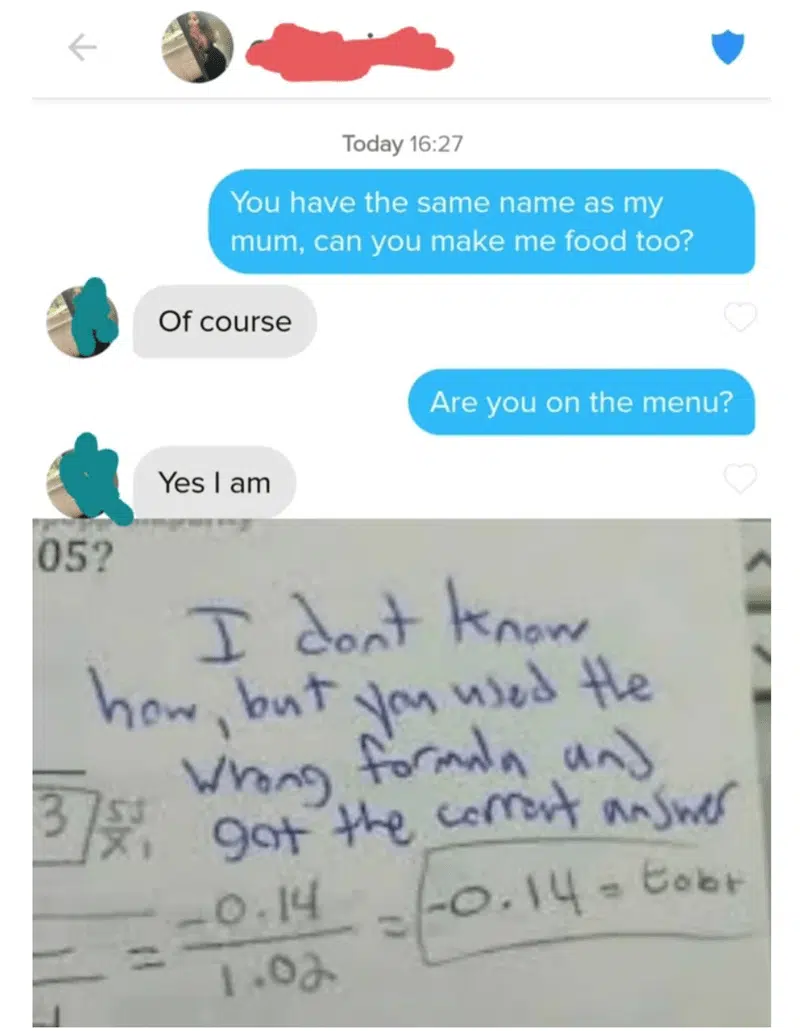 Today 16:27
You have the same name as my
mum, can you make me food too?
Of course
Are you on the menu?
Yes I am
05?
I dont know
how, but you used the
wrong formula and
got the correct answer
3
-0.14
= = -0.14 = tobt
1.02